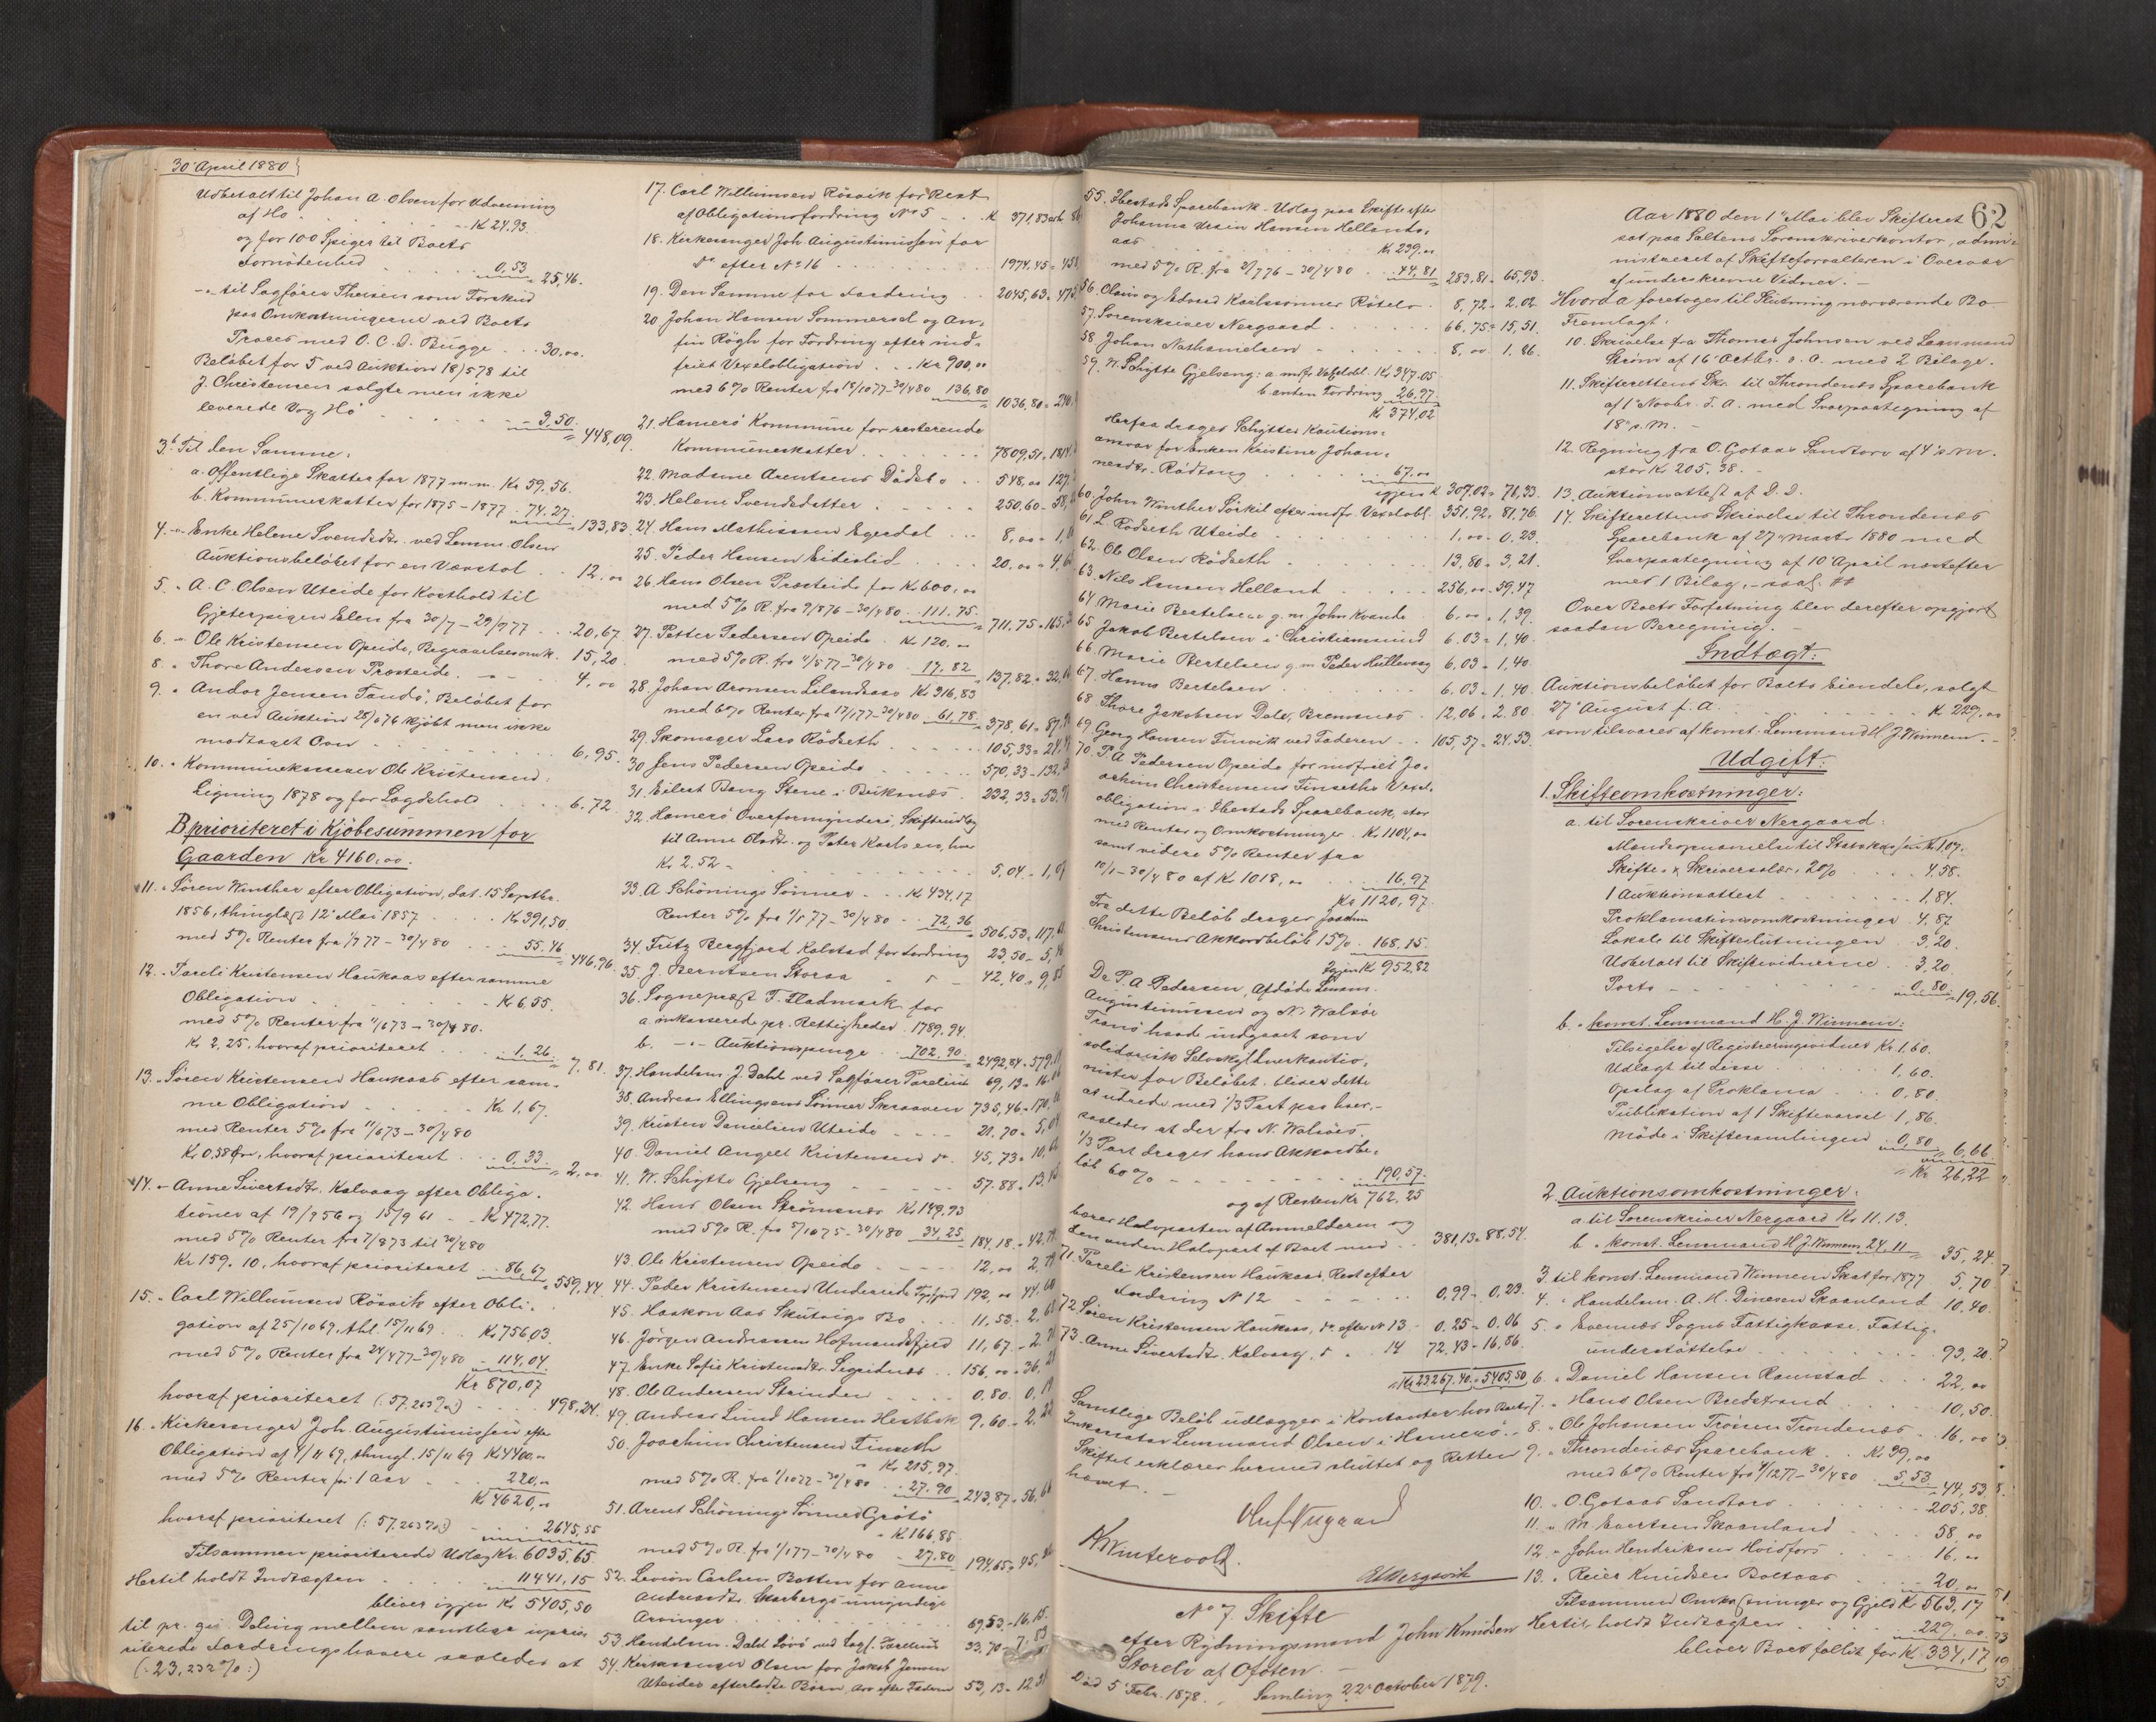 30' April 1880
Udbetalt til Johan A. Olsen for Udvinning
af Hö Kr 24,93.
og for 100 Spiger til Boets
Fornödenhed 0,53 = 25,46.
-"- til Sagförer Theisen som Forskud
paa Omkostningerne ved Boets
Proces med O. C. D. Bugge 30,00.
Belöbet for 5 ved Auktion 18/5 78 til
J. Christensen solgte men ikke
leverede Vog Hö 3,50.
= 448,09.
3b Til den Samme:
a. offentlige Skatter for 1877 m.m. Kr 59,56.
b. Kommuneskatter for 1875-1877 74,27. = 133,83.
4. " Enke Helene Svendsdtr. ved Lensm. Olsen
Auktionsbelöbet for en Vævstol 12,00
5. " A. C. Olsen Uteide for Kosthold til
Gjeterpigen Elen fra 30/7 - 29/9 77 20,67.
6. " Ole Kristensen Opeide, Begravelsesomk. 15,20.
8. " Thore Andersen Præsteide 4,00
9. " Andor Jensen Tandö, Belöbet for
en ved Auktion 28/6 76 kjöbt men ikke
modtaget Ovn 6,95.
10. " Kommunekasserer Ole Kristensen:
Ligning 1878 og for Lægdehold 6,72.
B prioriteret i Kjöbesummen for
Gaarden Kr 4160,00.
11. " Sören Winther efter Obligation, dat. 15 Septbr.
1856, thinglæst 12' Mai 1857 Kr 391,50.
med 5% Renter fra 1/7 77 - 30/4 80 55,46
= 446,96.
12. " Pareli Kristensen Haukaas efter samme
Obligation Kr 6,55.
med 5% Renter fra 11/6 73 - 30/4 80.
Kr 2,25, hvoraf prioriteret 1,26. = 7,81.
13. " Sören Kristensen Haukaas efter sam-
me Obligation Kr 1,67.
med Renter 5% fra 11/6 73 - 30/4 80
Kr 0,58 Øre, hvoraf prioriteret 0,33. = 2,00.
14. " Anne Sivertsdtr. Kalvaag efter Obliga-
tioner af 19/9 56 og 15/9 61 Kr 472,77.
med 5% Renter fra 7/8 73 til 30/4 80
Kr 159,10, hvoraf prioriteret 86,67
= 559,44
15. " Carl Willumsen Rösvik efter Obli-
gation af 25/10 69, thl. 15/11 69 Kr 756,03
med 5% Renter fra 24/4 77 - 30/4 80 114,04.
Kr 870,07
hvoraf prioriteret (: 57,263% :) 498,24.
16. " Kirkesanger Joh. Augustinussen efter
Obligation af 4/11 69, thingl. 15/11 69 Kr 4400,00
med 5% Renter for 1 Aar 220,00
Kr 4620,00
hvoraf prioriteret (: 57,263% :) 2645,55
Tilsammen prioriterede Udlæg Kr. 6035,65.
Hertil holdt Indtægten 11441,15
bliver igjen Kr 5405,50
til pr. qvo. Deling mellem samtlige uprio-
riterede Fordringshavere saaledes at
(: 23,232% :)
17. Carl Willumsen Rösvik for Rest
af Obligationsfordring No 5 K 371,83
18. Kirkesanger Joh. Augustinussen for
do efter No 16 1974,45 =
19. Den Samme for Fordring 2045,63 =
20 Johan Hansen Sommersel og An-
fin Rögh for Fordring efter ind-
friet Vexelobligation Kr 900,00
med 6% Renter fra 18/10 77 - 30/4 80 136,80
1036,80 =
21. Hamerö Kommune for resterende
Kommuneskatter 7809,51 =
22. Madame Arentsens Dödsbo 548,00
23. Helene Svendsdatter 250,60
24. Hans Mathisssen Egerdal 8,00
25. Peder Hansen Eideslid 20,00
26. Hans Olsen Præsteide for Kr 600,00
med 5% R. fra 9/8 76 - 30/4 80 111,75 = 711,75 =
27. Petter Pedersen Opeide Kr 120,00
med 5% R. fra 11/5 77 - 30/4 80 17,82 = 137,82 =
28. Johan Aronsen Lilandsaas Kr 316,83
med 6% Renter fra 17/1 77 - 30/4 80 61,78 = 378,61 =
29. Skomager Lars Rödseth 105,33 =
30 Jens Pedersen Opeide 570,33 =
31. Eilert Bang Stene i Buksnæs 232,33 =
32. Hamerö Overformynderi, Skifteudlæg
til Anne Olsdtr. og Peter Karlsen, hver
Kr 2,52 - 5,04
33. A. Schönings Sönner Kr 434,17
Renter 5% fra 1/1 77 - 30/4 80 72,36 = 506,53 =
34. Fritz Bergfjord Kalstad for Fordring 23,50
35. J. Berntsen Storaa 42,40 =
36. Sognepræst F. Fladmark for
a. inkasserede pr. Rettigheder 1789,94
b. -"- Auktionspenge 702,90 = 2492,84 =
37. Handelsm. J. Dahl ved Sagförer Parelius 69,13
38. Andreas Ellingsens Sönner Skraaven 735,46 =
39. Kristen Danielsen Uteide 21,70
40. Daniel Angell Kristensen do 45,73
41. W. Schytte Gjelseng 57,88
42. Hans Olsen Strömsnes Kr 149,93
med 5% R. fra 5/10 75 - 30/4 80 34,25 = 184,18
43. Ole Kristensen Opeide 12,00
44. Peder Kristensen Undereide Tysfjord 192,00
45. Haakon Aas Skutviks Bo 11,53
46. Jörgen Andreassen Hofmandsfjeld 11,67
47. Enke Sofie Kristensdtr. Sigridnes 156,00
48. Ole Andersen Strinden 0,80
49. Andreas Lund Hansen Hestbak 9,60
50. Joachim Christensen Finseth
Kr 215,97.
med 5% R. fra 1/10 77 - 30/4 80 27,90 = 243,87
51. Arent Schönings Sönner Grötö
K 166,85.
med 5% R. fra 1/1 77 - 30/4 80 27,80 194,65
52. Levion Carlsen Botten for Anne
Andreasdtr. Skarbergs umyndige
Arvinger 69,53 - 16,15.
53. Handelsm. Dahl Lövö ved Sagf. Parelius 33,70
54. Kirkesanger Olsen for Jakob Jensen
Uteides efterladte Börn, Arv efter Faderen 53,13
55. Ibestads Sparebank - Udlæg paa Skifte efter
Johanna Hansen Hellands-
aas Kr 239,00
med 5% R. fra 2/7 76 - 30/4 80 44,81 283,81 = 65,93.
56. Olaus og Edvard Karlssönner Rötelv 8,72 = 2,02.
57. Sorenskriver Nergaard 66,75 = 15,51.
58. Johan Nathanielsen 8,00 1,86.
59. W. Schytte Gjelseng: a. indfr. Vexelobl. Kr 347,05
b. anden Fordring 26,97.
Kr 374,02
Herfra drages Schyttes Kautions-
ansvar for Enken Kristine Johan-
nesdtr. Rödtang 67,00
igjen K 307,02 = 71,33.
60. John Winther Sörkil efter indfr. Vexelobl. 351,92 = 81,76.
61. L. Rödseth Uteide 1,00 = 0,23.
62. Ole Olsen Rödseth 13,80 = 3,21.
63. Nils Hansen Helland 256,00 = 59,47
64 Marie Bertelsen g.m. John Kvande 6,00 = 1,39.
65 Jakob Bertelsen i Christiansund 6,03 = 1,40.
66. Marie Bertelsen g.m. Peder Hullevaag 6,03 = 1,40
67. Hanna Bertelsen 6,03 = 1,40.
68 Thore Jakobsen Dale, Bremsnæs 12,06 = 2,80.
69 Georg Hansen Finvik ved Faderen 105,57 = 24,53.
70 P. A. Pedersen Opeide for indfriet Jo-
achim Christensens Finseths Vexel-
obligation i Ibestads Sparebank, stor
med Renter og Omkostninger Kr 1104,00
samt videre 5% Renter fra
10/1 - 30/4 80 af Kr 1018,00 16,97
Kr 1120,97.
Fra dette Belöb drages Joachim
Christensens Akkordbelöb 15% 168,15.
Igjen Kr 952,82
Da P. A. Pedersen, Afdöde Lensm.
Augustinussen og N. Walsöe
Tranö havde indgaaet som
solidarisk Selvskyldnerkautio-
nister for Belöbet, bliver dette
at udrede med 1/3 Part paa hver,-
saaledes at der fra N. Walsöes
1/3 Part drages hans Akkordbe-
löb 60% 190,57.
og af Resten Kr 762,25
bærer Halvparten af Anmelderen og
den anden Halvpart af Boet med 381,13 = 88,54.
71. Pareli Kristensen Haukaas, Rest efter
Fordring N 12 0,99 - 0,23.
72 Sören Kristensen Haukaas, do efter N 13 0,25 = 0,06
73. Anne Sivertsdtr. Kalvaag, " 14 72,43 - 16,86.
= Kr 23267,40 = 5405,50
Samtlige Belöb udlægges i Kontanter hos Boets
Inkassator Lensmand Olsen i Hamerö.
Skiftet erklæres hermed sluttet og Retten
hævet.
Oluf Nergaard
A. Wintervold.
No 7. Skifte
efter Rydningsmand John Knudsen
Storelv af Ofoten.
Död 5' Febr. 1878. Samling 22' October 1879.
62
Aar 1880 den 1' Mai blev Skifteret
sat paa Saltens Sorenskriverkontor, admi-
nistreret af Skifteforvalteren i Overvær
af underskrevne Vidner.
Hvorda foretoges til Slutning nærværende Bo
Fremlagt:
10. Skrivelse fra Thomas Johnsen ved Lensmand
Ström af 16' Octbr. s. A. med 2 Bilage.
11. Skifterettens Skr. til Throndenes Sparebank
af 1' Novbr. s. A. med Svarpaategning af
18' s. M.
12. Regning fra O. Gotaas Sandtorv af 4' s. M.
stor Kr 205,38.
13. Auktionsattest af D. D.
14. Skifterettens Skrivelse til Throndenæs
Sparebank af 27' Marts 1880 med
Svarpaategning af 10' April næstefter
med 1 Bilag, - saal.
Over Boets Forfatning blev derefter opgjort
saadan Beregning.
Indtægt:
Auktionsbelöbet for Boets Eiendele, solgt
27' August f. A. K 229,00
som tilsvares af konst. Lensmand H. J. Winnem.
Udgift:
1. Skifteomkostninger:
a. til Sorenskriver Nergaard:
til Statskassen Kr 1,07.
Skifte- & Skriversalær, 2% 4,58.
1 Auktionsattest 1,84.
Proklamationsomkostninger 4,87
Lokale til Skifteslutningen 3,20.
Udbetalt til Skiftevidnerne 3,20.
Porto 0,80 = 19,56.
b. " konst. Lensmand H. J. Winnem:
Tilsigelse af Registreringsvidner Kr 1,60.
Udlagt til disse 1,60.
Opslag af Proklama 0,80.
Publikation af 1 Skiftevarsel 1,86.
Möde i Skiftesamlingen 0,80 = 6,66.
= Kr 26,22
2. Auktionsomkostninger:
a til Sorenskriver Nergaard Kr 11,13.
b. " konst. Lensmand H. J. Winnem 24,11 = 35,24
3. til konst. Lensmand Winnem Skat for 1877 5,70
4. " Handelsm. A. M. Dinesen Skaanland 10,40.
5. " Evenæs Sogns Fattigkasse, Fattig-
understöttelse 93,20.
6. " Daniel Hansen Ramstad 22,00
7. " Hans Olsen Bredstrand 10,50.
8. " Ole Johansen Trösen Trondenæs 16,00
9. " Throndenæs Sparebank Kr 39,00
med 6% Renter fra 4/12 77 - 30/4 80 5,53 = 44,53
10. " O. Gotaas Sandtorv 205,38.
11. " M. Evertsen Skaanland 58,00
12. " John Hendriksen Hvidfors 16,00
13. " Reier Knudsen Boltaas 20,00
Tilsammen Omkostninger og Gjeld Kr 563,17
Hertil holdt Indtægten 229,00.
bliver Boet fallit for Kr. 334,17